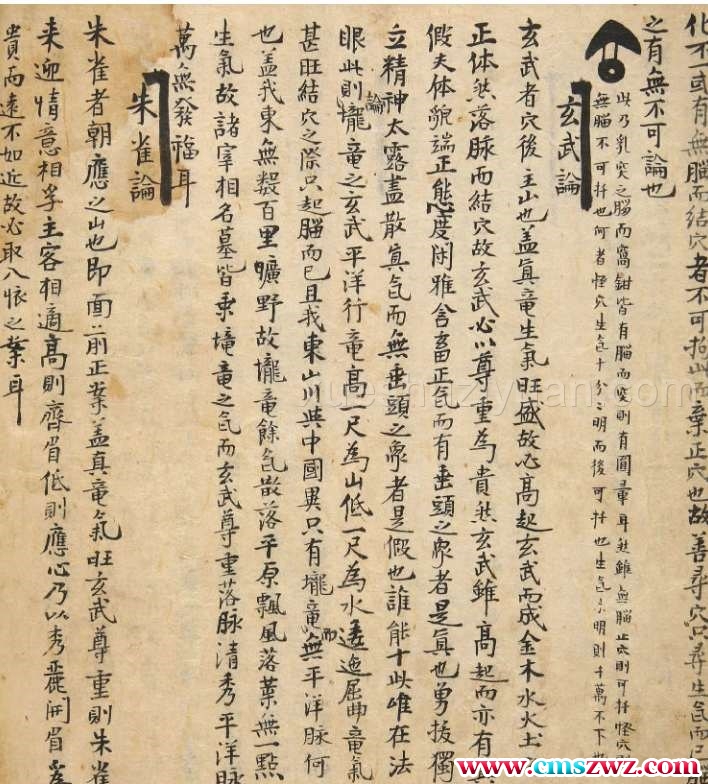 化不一或有無腦而結穴者不可拘此而棄正穴也故善尋穴只尋生气而已腦
之有無不可論也
此乃乳突之腦而窩鉗皆有腦而突則有圓暈耳然雖無腦止穴則可扦怪穴則
無腦不可扦也何者怪穴生气十分分明而後可扦也生气不明則千萬不下也
玄武論
玄武者穴後主山也盖眞竜生氣旺盛故必高起玄武而成金木水火土
正体然落脉而結穴故玄武必以尊重為貴然玄武雖高起而亦有
假夫体貌端正態度闲雅含畜正气而有垂頭之象者是眞也勇拔獨
立精神太露盖散眞气而無垂頭之象者是假也誰能十此唯在法
眼此則論壠竜之玄武平洋行竜高一尺為山低一尺為水逶迤屈曲竜氣
甚旺結穴之際只起腦而已且我東山川與中國異只有壠竜而無平洋脉何
也盖我東無数百里曠野故壠竜餘气散落平原飄風落葉無一點
生氣故諸宰相名墓皆乘壠竜之气而玄武尊重落脉清秀平洋脉
萬無發福耳
朱雀論
朱雀者朝應之山也即面前正案盖真竜氣旺玄武尊重則朱雀
来迎情意相孚主客相適高則齊眉低則應心乃以秀麗開眉為
貴而遠不如近故必取入懐之案耳
www.cmszwz.com